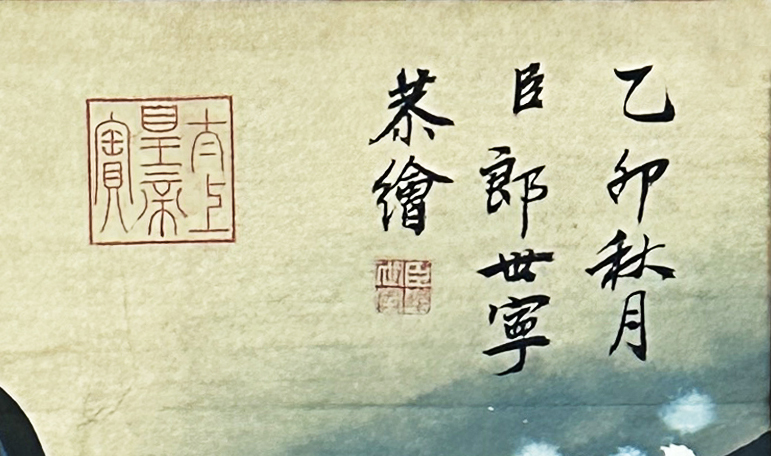 乙卯秋月
臣郎世寧
恭繪
太上
皇帝
之寶